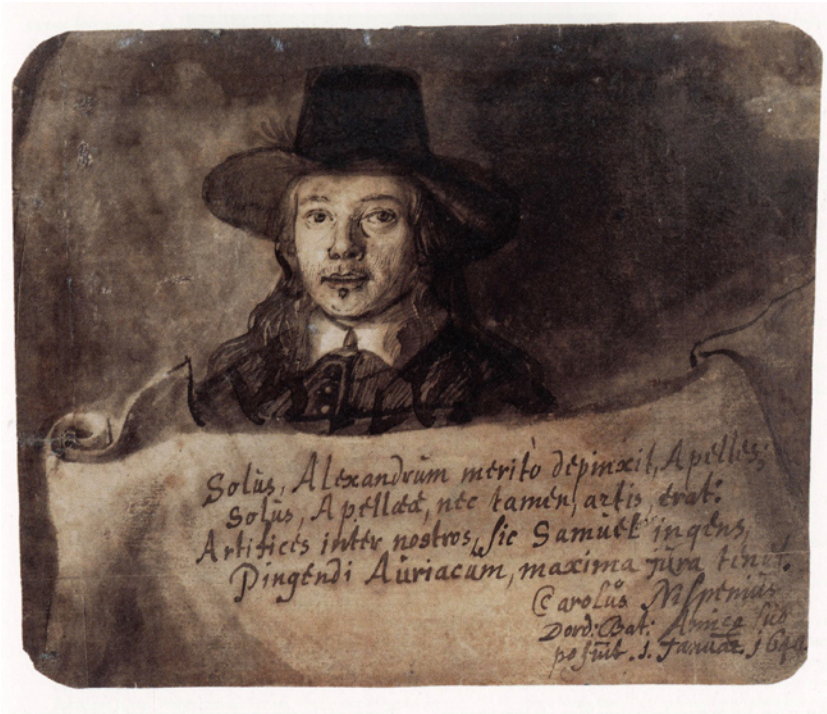 Solùs, Alexandrùm meritò depinxit, Apelles;
Solùs, Apelleæ, nec tamen, artis, erat:
Artifices inter nostros, sic Samùel ingens,
Pingendi Aùriacùm, maxima jùra tenùit.
Carolùs Nispeniùs
Dord: Bat: Amico sùo
posùit. 1. Janùar.